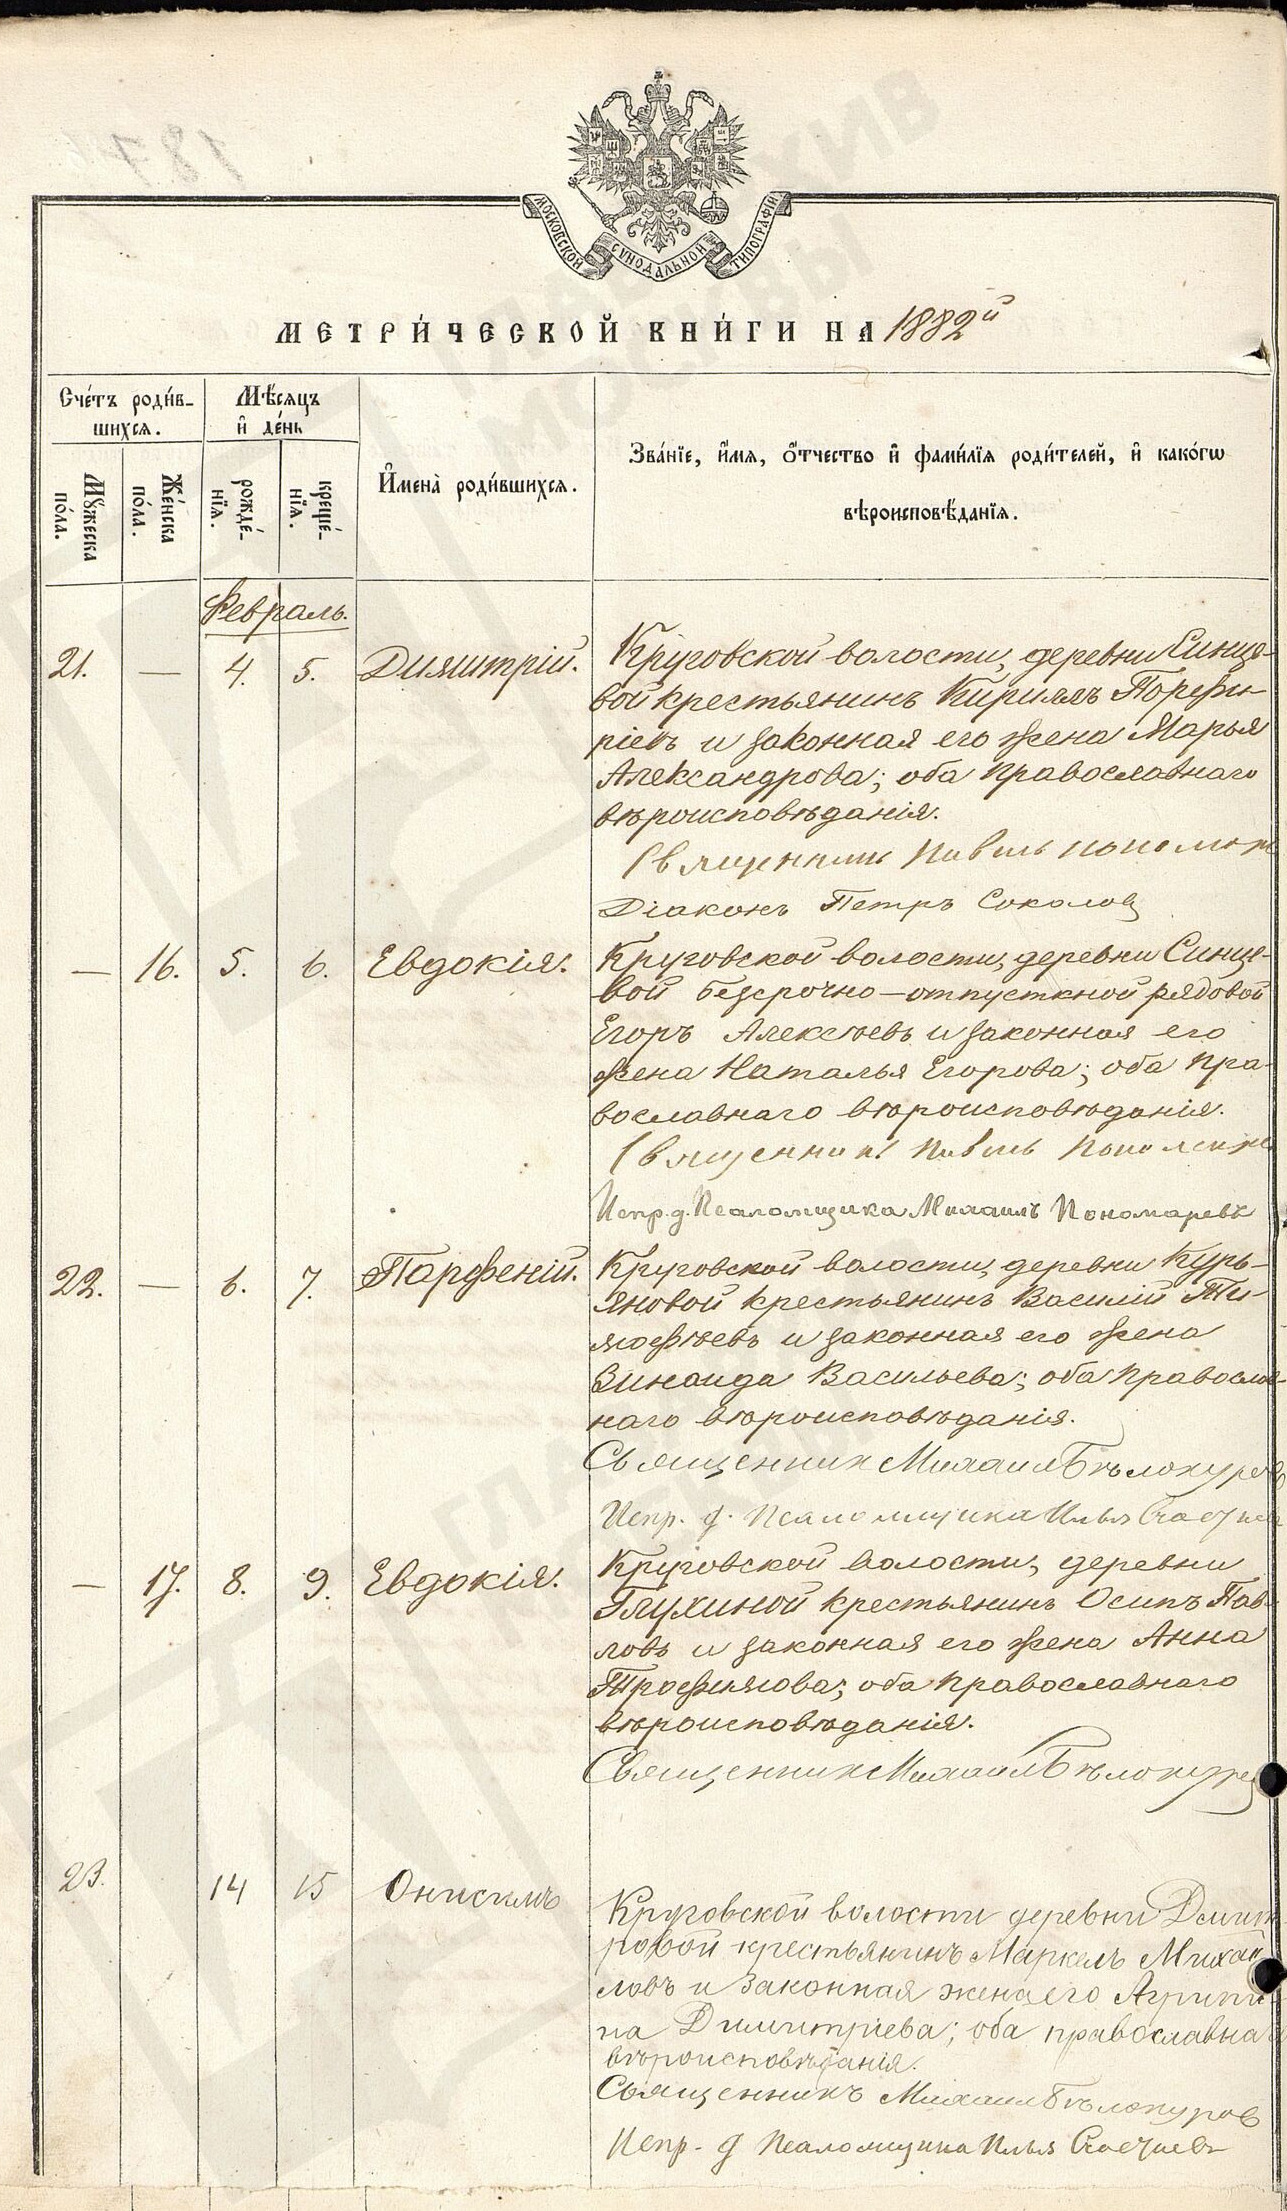 МОСКОВСКОЙ СУНОДАЛЬНОЙ ТИПОГРАФІИ
МЕТРИ́ЧЕСКОЙ КНИ́ГИ НА 1882й
Сче́тъ роди́в-
шихся.
Мѣ́сяцъ
и҆ де́нь
Мꙋ́жеска
по́ла.
Же́нска
по́ла.
рожде́-
нїя.
креще́-
нїя.
И҆мена̀ роди́вшихся.
Зва́нїе, и҆́мя, ѻ҆́тчество и҆ фами́лїя роди́телей, и҆ како́гѡ
вѣроисповѣ́данїя.
Февраль.
21. — 4. 5. Димитрій. Круговской волости, деревни Синце-
вой крестьянинъ Кириллъ Порфи-
ріевъ и законная его жена Марья
Александрова; оба православнаго
вѣроисповѣданія.
Священникъ Павелъ
Діаконъ Петръ Соколов
— 16. 5. 6. Евдокія. Круговской волости, деревни Синце-
вой безсрочно-отпускной рядовой
Егоръ Алексѣевъ и законная его
жена Наталья Егорова; оба пра-
вославнаго вѣроисповѣданія.
Священникъ Павелъ
Испр. д. Псаломщика Михаилъ Пономаревъ
22. — 6. 7. Парфеній. Круговской волости, деревни Курь-
яновой крестьянинъ Василій Ти-
мофѣевъ и законная его жена
Зинаида Васильева; оба православ-
наго вѣроисповѣданія.
Священник Михаил Бѣлокуров
Испр. д. Псаломщика Илья
— 17. 8. 9. Евдокія. Круговской волости, деревни
Глухиной крестьянинъ Осипъ Пав-
ловъ и законная его жена Анна
Трофимова; оба православнаго
вѣроисповѣданія.
Священник Михаил Бѣлокуров
23. 14 15 Онисимъ Круговской волости деревни Димит
ровой крестьянинъ Маркелъ Михай
ловъ и законная жена его Агрипи
на Димитріева; оба православна
вѣроисповѣданія.
Священникъ Михаил Бѣлокуров
Испр. д Псаломщика Илья